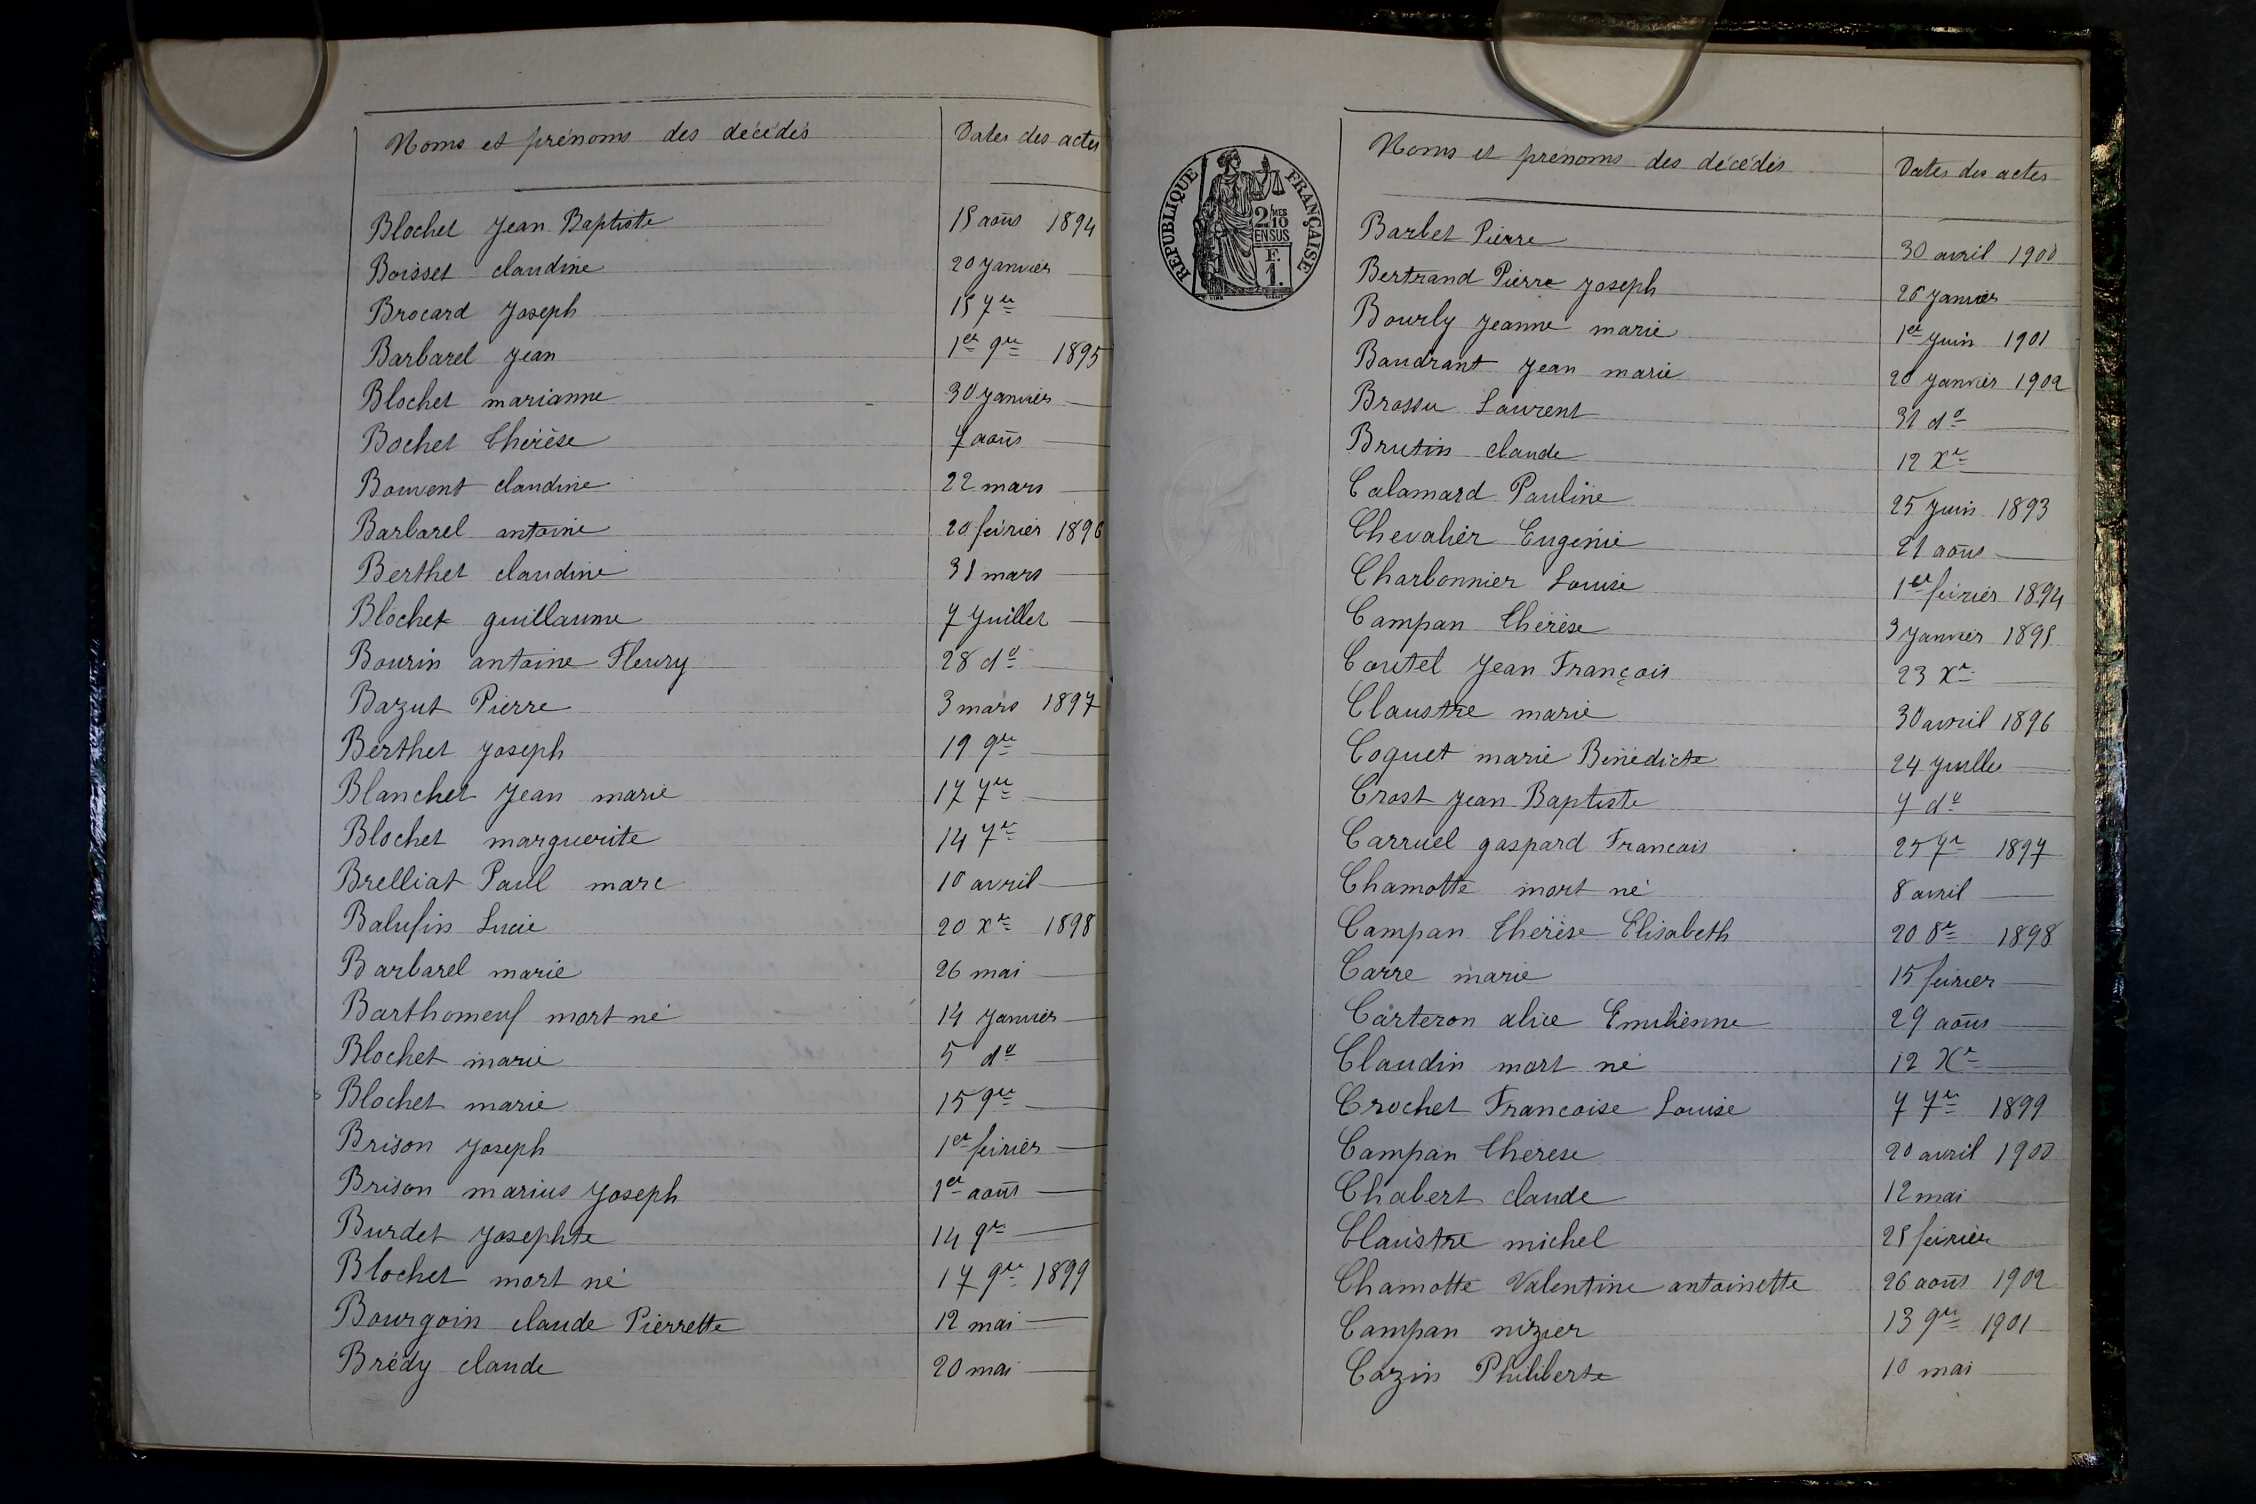 Noms et prénoms des décédés Dates des actes
Blochet Jean Baptiste 15 août 1894
Boisset claudine 20 Janvier
Brocard Joseph 15 7re
Barbarel Jean 1er 9re 1895
Blochet marianne 30 Janvier
Bochet Thérèse 7 août
Bouvent claudine 22 mars
Barbarel antoine 20 février 1896
Berthet claudine 31 mars
Blochet guillaume 7 Juillet
Bourin antoine Fleury 28 do
Bazut Pierre 3 mars 1897
Berthet Joseph 19 9re
Blanchet Jean marie 17 7re
Blochet marguerite 14 7re
Brelliat Paul marc 10 avril
Balufin Lucie 20 Xre 1898
Barbarel marie 26 mai
Barthomeuf mort né 14 Janvier
Blochet marie 5 do
Blochet marie 15 9re
Brison Joseph 1er février
Brison marius Joseph 1er août
Burdet Josephte 14 9re
Blochet mort né 17 9re 1899
Bourgoin claude Pierrette 12 mai
Brédy claude 20 mai
RÉPUBLIQUE FRANÇAISE
2 MES
10
EN SUS
F.
1.
Noms et prénoms des décédés Dates des actes
Barbet Pierre 30 avril 1900
Bertrand Pierre Joseph 26 Janvier
Bourly Jeanne marie 1er Juin 1901
Baudrant Jean marie 20 Janvier 1902
Brossu Laurent 31 do
Brutin claude 12 Xre
Calamard Pauline 25 Juin 1893
Chevalier Eugénie 21 août
Charbonnier Louise 1er février 1894
Campan Thérèse 3 Janvier 1895
Coutel Jean François 23 Xre
Claustre marie 30 avril 1896
Coquet marie Bénédicte 24 Juillet
Crost Jean Baptiste 7 do
Carruel gaspard Francois 25 7re 1897
Chamotte mort né 8 avril
Campan Thérèse Elisabeth 20 8re 1898
Carre marie 15 février
Carteron alice Emilienne 29 août
Claudin mort né 12 Xre
Crochet Francoise Louise 7 7re 1899
Campan Thérese 20 avril 1900
Chabert claude 12 mai
Claustre michel 25 février
Chamotte Valentine antoinette 26 août 1902
Campan nizier 13 9re 1901
Cazin Philiberte 10 mai